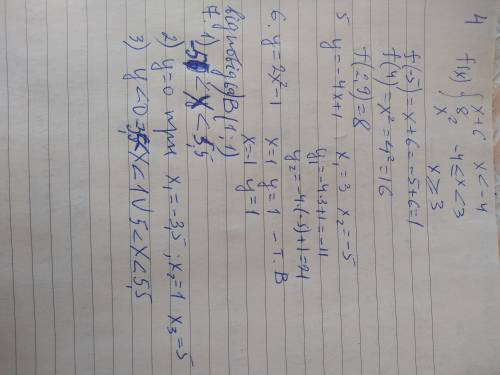 4
f(x) { x+6 x<-4
8 -4≤x<3
x² x≥3
f(-5)=x+6=-5+6=1
f(4)=x²=4²=16
f(2,9)=8
5 y=-4x+1 x₁=3 x₂=-5
y₁=-4·3+1=-11
y₂=-4·(-5)+1=21
6. y=2x²-1 x=1 y=1 - т. B
x=-1 y=1
відповідь B(1;1)
7. 1) <x<5,5
2) y=0 при x₁=-3,5; x₂=1 x₃=5
3) y<0 <x<1 V 5<x<5,5